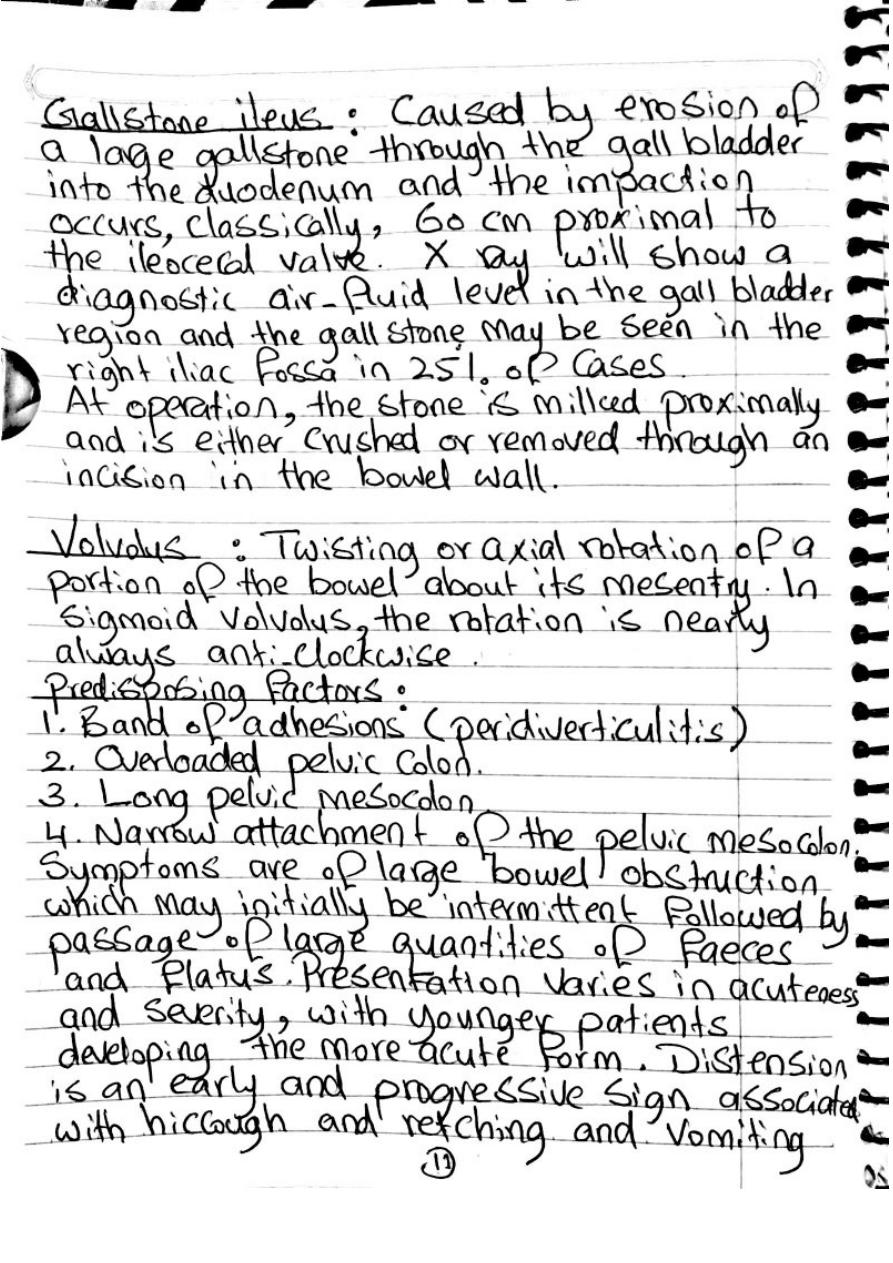 Gallstone ileus : Caused by erosion of
a lage gallstone through the gall bladder
into the duodenum and the impaction
occurs, classically, 60 cm proximal to
the ileocecal valve. X ray will show a
diagnostic air-fluid level in the gall bladder
region and the gall stone may be seen in the
right iliac fossa in 25% of Cases.
At operation, the stone is milked proximally
and is either crushed or removed through an
incision in the bowel wall.
Volvolus : Twisting or axial rotation of a
portion of the bowel about its mesentry. In
Sigmoid Volvolus, the rotation is nearly
always anti-clockwise.
Predisposing factors :
1. Band of adhesions (peridiverticulitis)
2. Overloaded pelvic Colon.
3. Long pelvic mesocolon
4. Narrow attachment of the pelvic mesocolon.
Symptoms are of large bowel obstruction
which may initially be intermittent followed by
passage of large quantities of faeces
and flatus. Presentation varies in acuteness
and severity, with younger patients
developing the more acute form. Distension
is an early and progressive sign associated
with hiccough and retching and vomiting
11